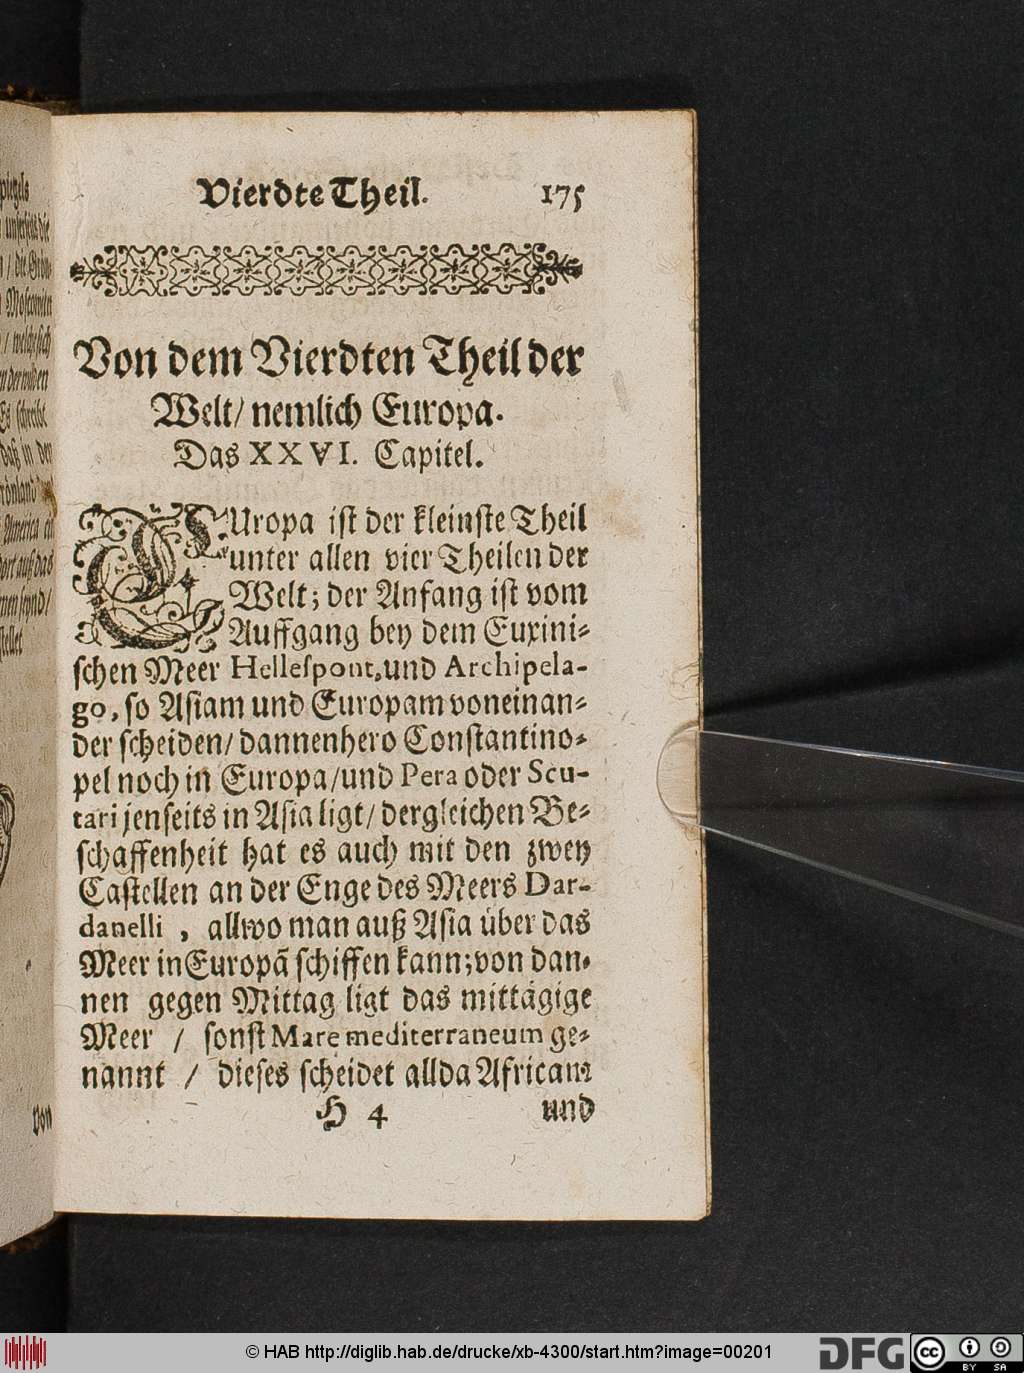 Vierdte Theil. 175
Von dem Vierdten Theil der
Welt/ nemlich Europa.
Das XXVI. Capitel.
EUropa ist der kleinste Theil
unter allen vier Theilen der
Welt; der Anfang ist vom
Auffgang bey dem Euxini-
schen Meer Hellespont, und Archipela-
go, so Asiam und Europam voneinan-
der scheiden/ dannenhero Constantino-
pel noch in Europa/ und Pera oder Scu-
tari jenseits in Asia ligt/ dergleichen Be-
schaffenheit hat es auch mit den zwey
Castellen an der Enge des Meers Dar-
danelli, allwo man auß Asia über das
Meer in Europā schiffen kann; von dan-
nen gegen Mittag ligt das mittägige
Meer / sonst Mare mediterraneum ge-
nannt / dieses scheidet allda Africam
H 4 und
© HAB http://diglib.hab.de/drucke/xb-4300/start.htm?image=00201
DFG
cc BY SA